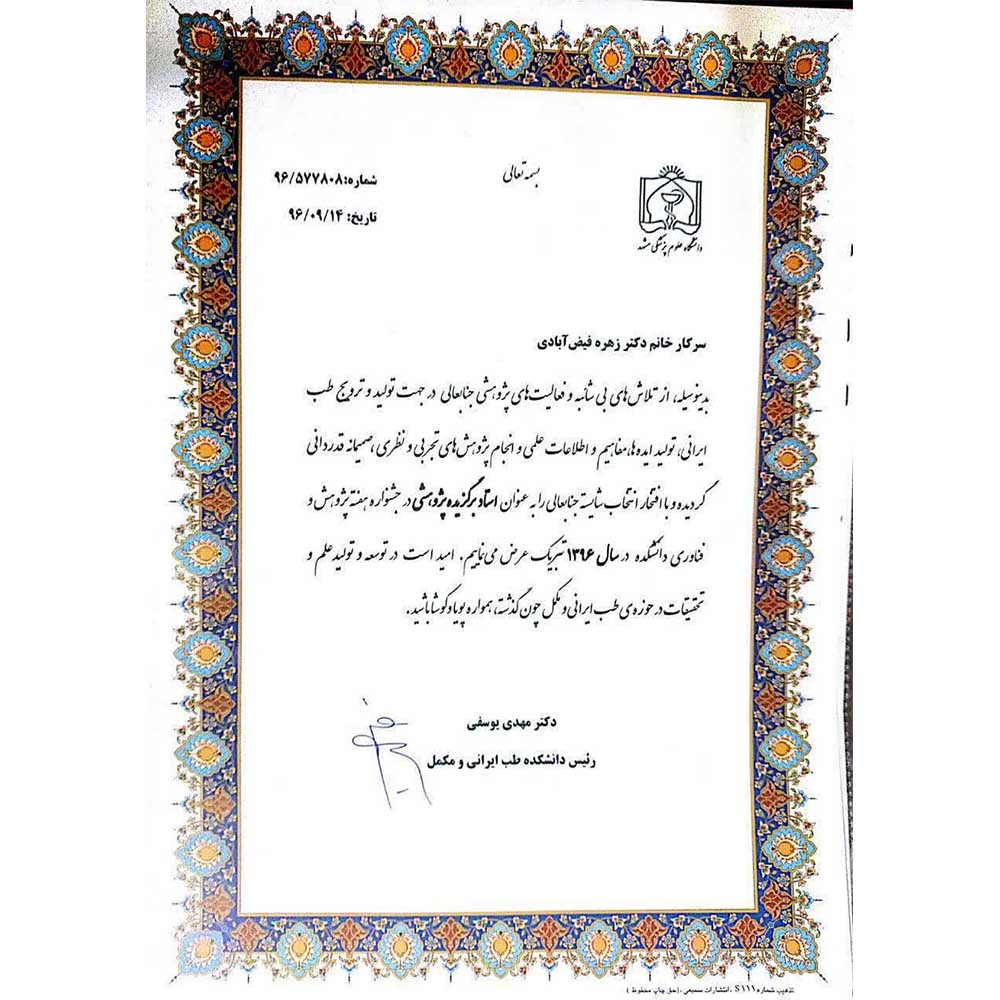 بسمه تعالی
دانشگاه علوم پزشکی مشهد
شماره: ۹۶/۵۷۷۸۰۸
تاریخ: ۹۶/۰۹/۱۴
سرکار خانم دکتر زهره فیض‌آبادی
بدینوسیله، از تلاش‌های بی شائبه و فعالیت‌های پژوهشی جنابعالی در جهت تولید و ترویج طب
ایرانی، تولید ایده‌ها، مفاهیم و اطلاعات علمی و انجام پژوهش‌های تجربی و نظری، صمیمانه قدردانی
گردیده و با افتخار انتخاب شایسته جنابعالی را به عنوان استاد برگزیده پژوهشی در جشنواره هفته پژوهش و
فناوری دانشکده در سال ۱۳۹۶ تبریک عرض می‌نماییم. امید است در توسعه و تولید علم و
تحقیقات در حوزه‌ی طب ایرانی و مکمل چون گذشته، همواره پویا و کوشا باشید.
دکتر مهدی یوسفی
رئیس دانشکده طب ایرانی و مکمل
تذهیب شماره S۱۱۱ ، انتشارات سمیعی ، (حق چاپ محفوظ)